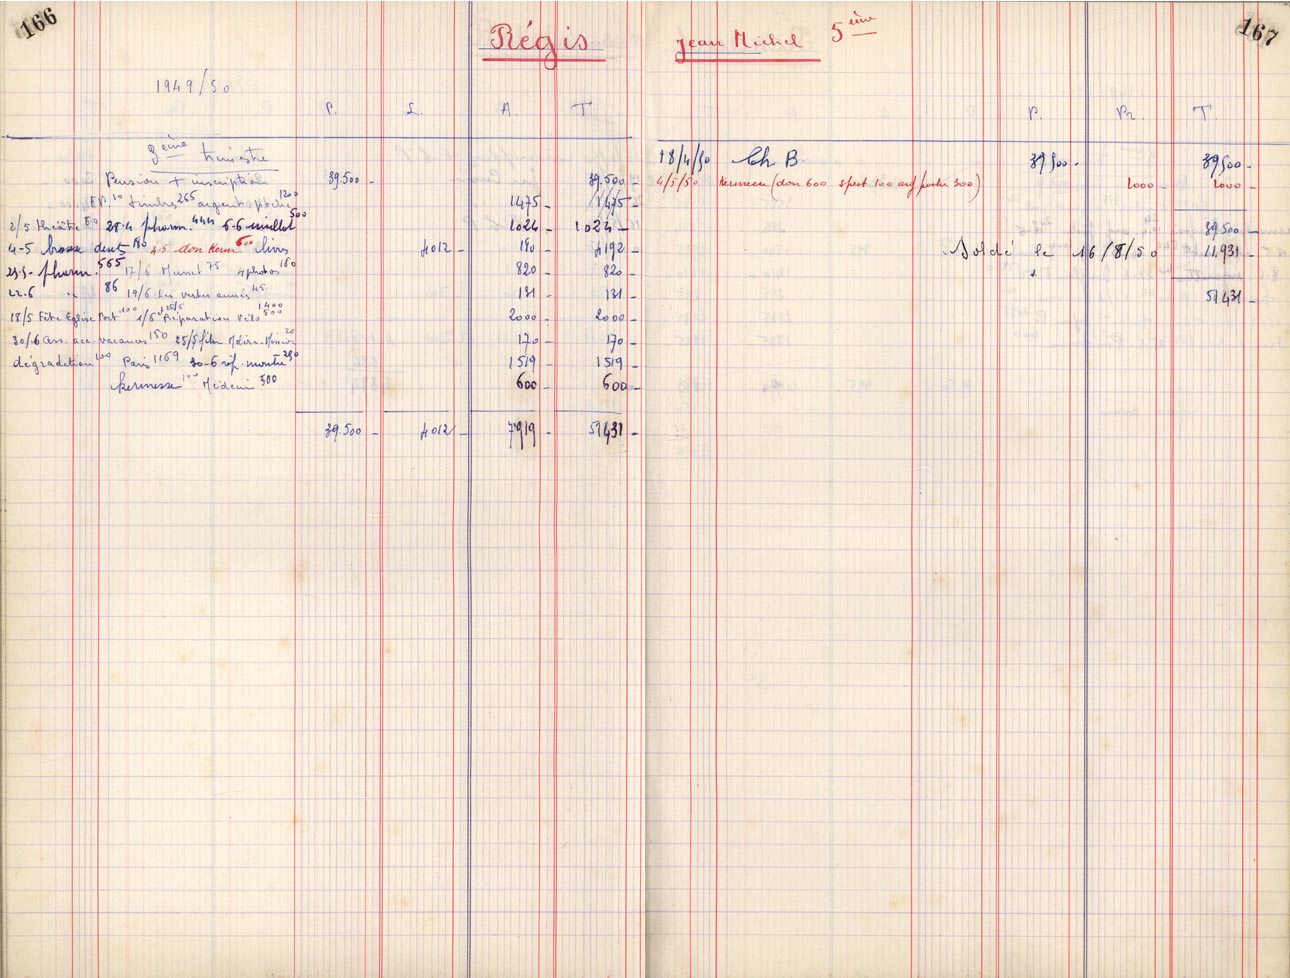 166
Régis
1949/50
P. L. A. T
3ème trimestre
Pension + inscription 39.500 - 39.500 -
E.P. 10 timbres 265 argent poche 1200 1475 - 1475 -
2/5 théâtre 80 28.4 pharm. 444 6-6 maillot 500 1024 - 1024 -
4-5 brosse dents 180 4-5 don Kerm 600 livres 4012 - 180 - 4192 -
23.5- pharm. 565 17/6 Musset 75 4 photos 160 820 - 820 -
22.6 " 86 19/6 Les vertes années 45 131 - 131 -
18/5 Fête Eglise Port 100 1/6 Réparation Vélo 500 1400 2000 - 2000 -
30/6 Ass. acc. vacances 150 25/5 film 20 170 - 170 -
dégradation 100 Paris 1169 30-6 rép. montre 250 1519 - 1519 -
kermesse 100 Médecin 500 600 - 600 -
39.500 - 4012 - 7919 - 51431 -
167
Jean Michel 5ème
P. Pr. T.
18/4/50 Ch B 39.500 - 39.500 -
4/5/50 Kermesse (don 600 sport 100 arg poche 300) 1000 - 1000 -
39.500 -
Soldé le 16/8/50 11.931 -
51431 -